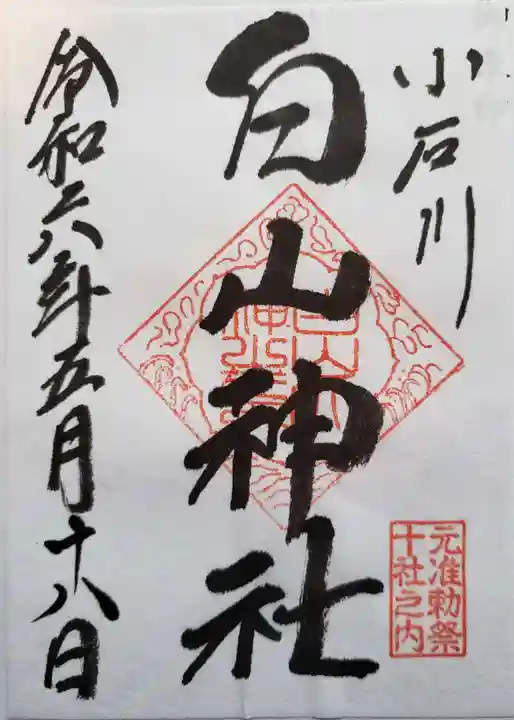 小石川
白山神社
令和六年五月十八日
元准勅祭
十社之内